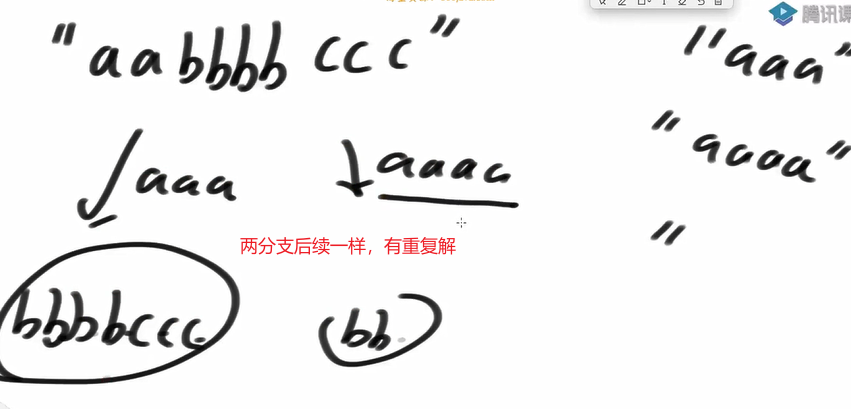 腾讯课
"aabbbbccc"
"aaa"
"aaaa"
aaa
aaaa
"
两分支后续一样，有重复解
bbbbccc
bb